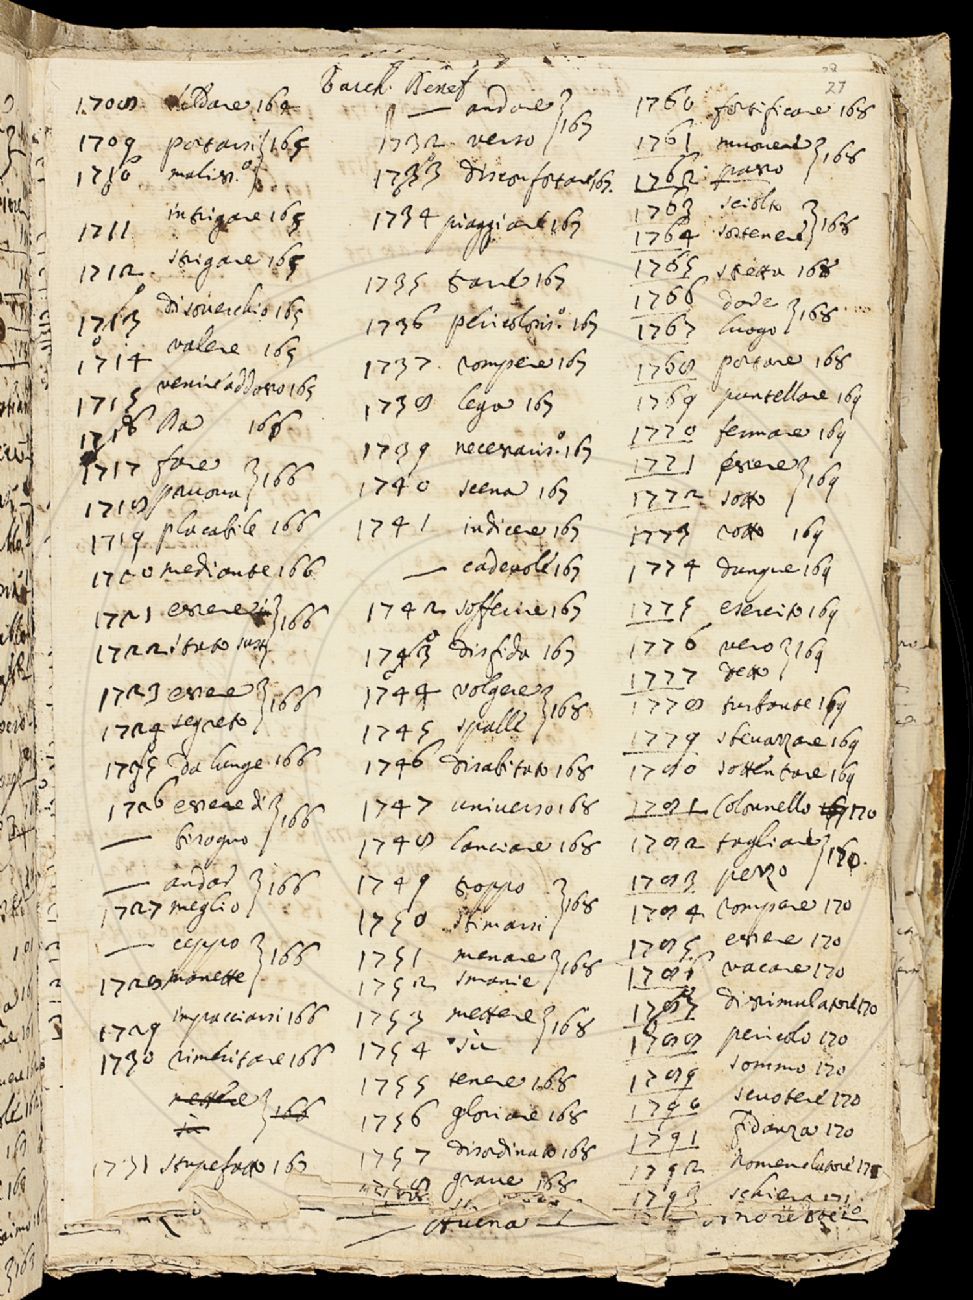 Barch. Benef.
27
1708 saldare 164
1709 portarsi } 165
1710 maliss.o
1711 intrigare 165
1712 strigare 165
1713 disoverchio 165
1714 valere 165
1715 venire addosso 165
1716 Ra 166
1717 fare } 166
1718 paurova
1719 placabile 166
1720 mediante 166
1721 essere } 166
1722 istrato
1723 essere } 166
1724 segreto
1725 da lunge 166
1726 essere di } 166
— bisogno
— andar } 166
1727 meglio
— ceppo } 166
1728 manette
1729 impacciarsi 166
1730 rimbrotare 166
mettere } 166
in
1731 stupefatto 167
— andare } 167
1732 verso
1733 disconfortare 167.
1734 piaggiare 167
1735 tante 167
1736 pericolosis.o 167
1737 rompere 167
1738 lega 167
1739 necessaris.o 167
1740 scena 167
1741 indicere 167
— cadevole 167
1742 sofferire 167
1743 disfida 167
1744 volgere } 168
1745 spalle
1746 disabitato 168
1747 universo 168
1748 lanciare 168
1749 troppo } 168
1750 stimarsi
1751 menare } 168
1752 smanie
1753 mettere } 168
1754 sù
1755 tenere 168
1756 gloriare 168
1757 disordinato 168
1758 grave 168
1760 fortificare 168
1761 muovere } 168
1762 passo
1763 sciolto } 168
1764 sostenere
1765 stretta 168
1766 dare } 168
1767 luogo
1768 portare 168
1769 puntellare 169
1770 fermare 169
1771 essere } 169
1772 sotto
1773 rotto 169
1774 dunque 169
1775 esercito 169
1776 vero } 169
1777 detto
1778 turbante 169
1779 stevazzare 169
1780 sottentrare 169
1781 colonnello 170
1782 tagliare } 170.
1783 pezzo
1784 rompere 170
1785 essere 170
1786 vacare 170
1787 dissimulatore 170
1788 pericolo 170
1789 sommo 170
1790 scuotere 170
1791 fidanza 170
1792 nomenclatore 171
1793 schiera 171